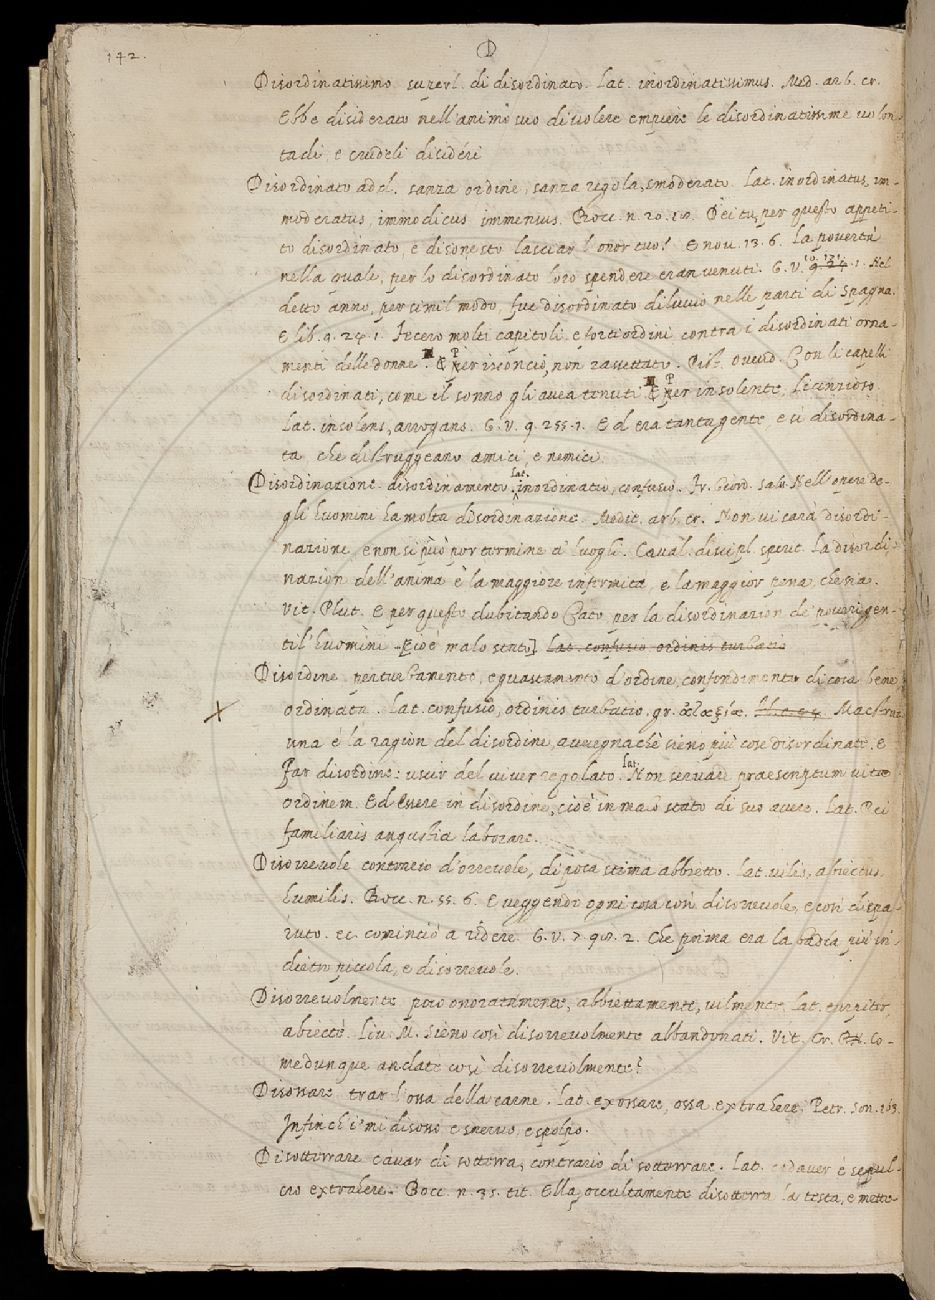 142.
D
Disordinatissimo superl. di disordinato. Lat. inordinatissimus. Med. arb. cr.
Ebbe disiderato nell'animo suo di volere empiere le disordinatissime volon-
tadi, e crudeli disidéri
Disordinato add. sanza ordine, sanza regola, smoderato. Lat. inordinatus, im-
moderatus, immodicus immensus. Bocc. n. 20. 18. Dei tu, per questo appeti-
to disordinato, e disonesto lasciar l'onor tuo? E nov. 13. 6. La povertà
nella quale, per lo disordinato loro spendere eran venuti. G. V. 1. Nel
detto anno, per simil modo, fue disordinato diluvio nelle parti di Spagna.
E lib. 9. 24. 1. Fecero molti capitoli, e forti ordini, contra i disordinati orna-
menti delle donne. E per isconcio, non rassettato. Pist. Ovvid. Con li capelli
disordinati, come il sonno gli avea tenuti. E per insolente, licenzioso.
Lat. insolens, arrogans. G. V. 9. 255. 1. Ed era tanta gente, e sì disordina-
ta che distruggeano amici, e nemici.
Disordinazione disordinamento. Lat. inordinatio, confusio. Fr. Giord. Salv. Nell'opere de-
gli huomini ha molta disordinazione. Medit. arb. cr. Non vi sarà disordi-
nazione, e non si può por termine a' luoghi. Caval. discipl. spirit. La disordi-
nazion dell'anima è la maggiore infermità, e la maggior pena, che sia.
Vit. Plut. E per questo dubitando Cato, per la disordinazion de' poveri gen-
til'huomini [cioè malo stato] Lat. confusio ordinis turbatio
Disordine perturbamento, e guastamento d'ordine, confondimento di cosa bene
ordinata. Lat. confusio, ordinis turbatio. gr. ἀταξία. Maestruz.
una è la ragion del disordine, avvegnachè sieno più cose disordinate. E
Far disordine: uscir del viver regolato. Lat. Non servare praescriptum vitae
ordinem. Ed Essere in disordine, cioè in malo stato di suo avere. Lat. Rei
familiaris angustia laborare.
Disorrevole contrario d'orrevole, di poca stima abbietto. Lat. vilis, abiectus,
humilis. Bocc. n. 55. 6. E veggendo ogni cosa così disorrevole, e così dispa-
ruto. ec. cominciò a ridere. G. V. 7. 98. 2. Che prima era la badía più in-
dietro piccola, e disorrevole.
Disorrevolmente poco onoratamente, abbiettamente, vilmente. Lat.
abiecté. Liv. M. Sieno così disorrevolmente abbandonati. Vit. Cr. Co-
medunque andate così disorrevolmente?
Disossare trar l'ossa della carne. Lat. exossare, ossa extrahere. Petr. son. 163.
Infin ch'i' mi disosso e snervo, e spolpo.
Disotterrare cavar di sotterra, contrario di sotterrare. Lat. cadaver è sepul-
cro extrahere. Bocc. n. 35. tit. Ella, occultamente disotterra la testa, e mette-